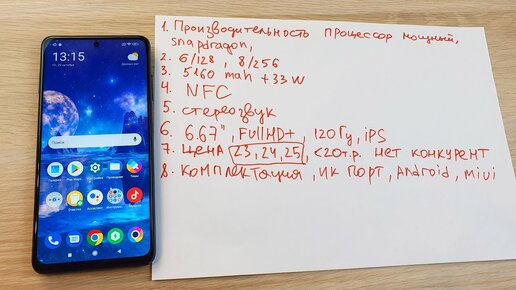 13:15
Пт, 29 октября
Поиск
1. Производительность процессор мощный,
snapdragon,
2. 6/128, 8/256
3. 5160 mah +33W
4. NFC
5. стереозвук
6. 6.67", FullHD+, 120Гц, iPS
7. ЦЕНА 23,24,25, <20т.р. НЕТ КОНКУРЕНТ
8. комплектация, ИК ПОРТ, Android, MIUI